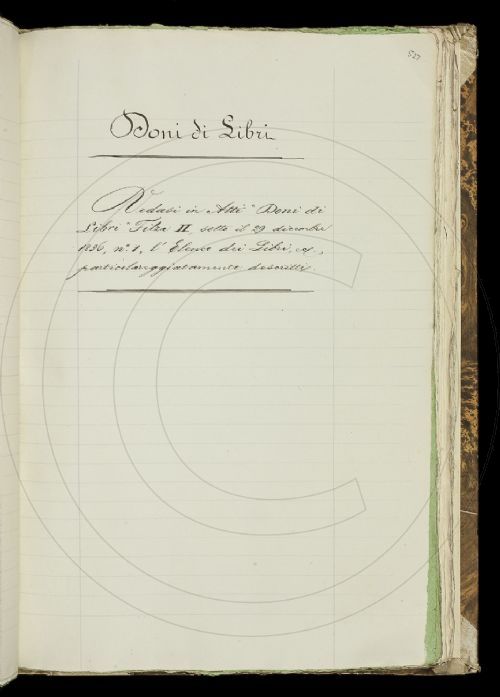 527
Doni di Libri
Vedasi in Atti "Doni di
Libri" Filza II sotto il 29 dicembre
1896, nº 1, l'Elenco dei Libri,
particolareggiatamente descritti.